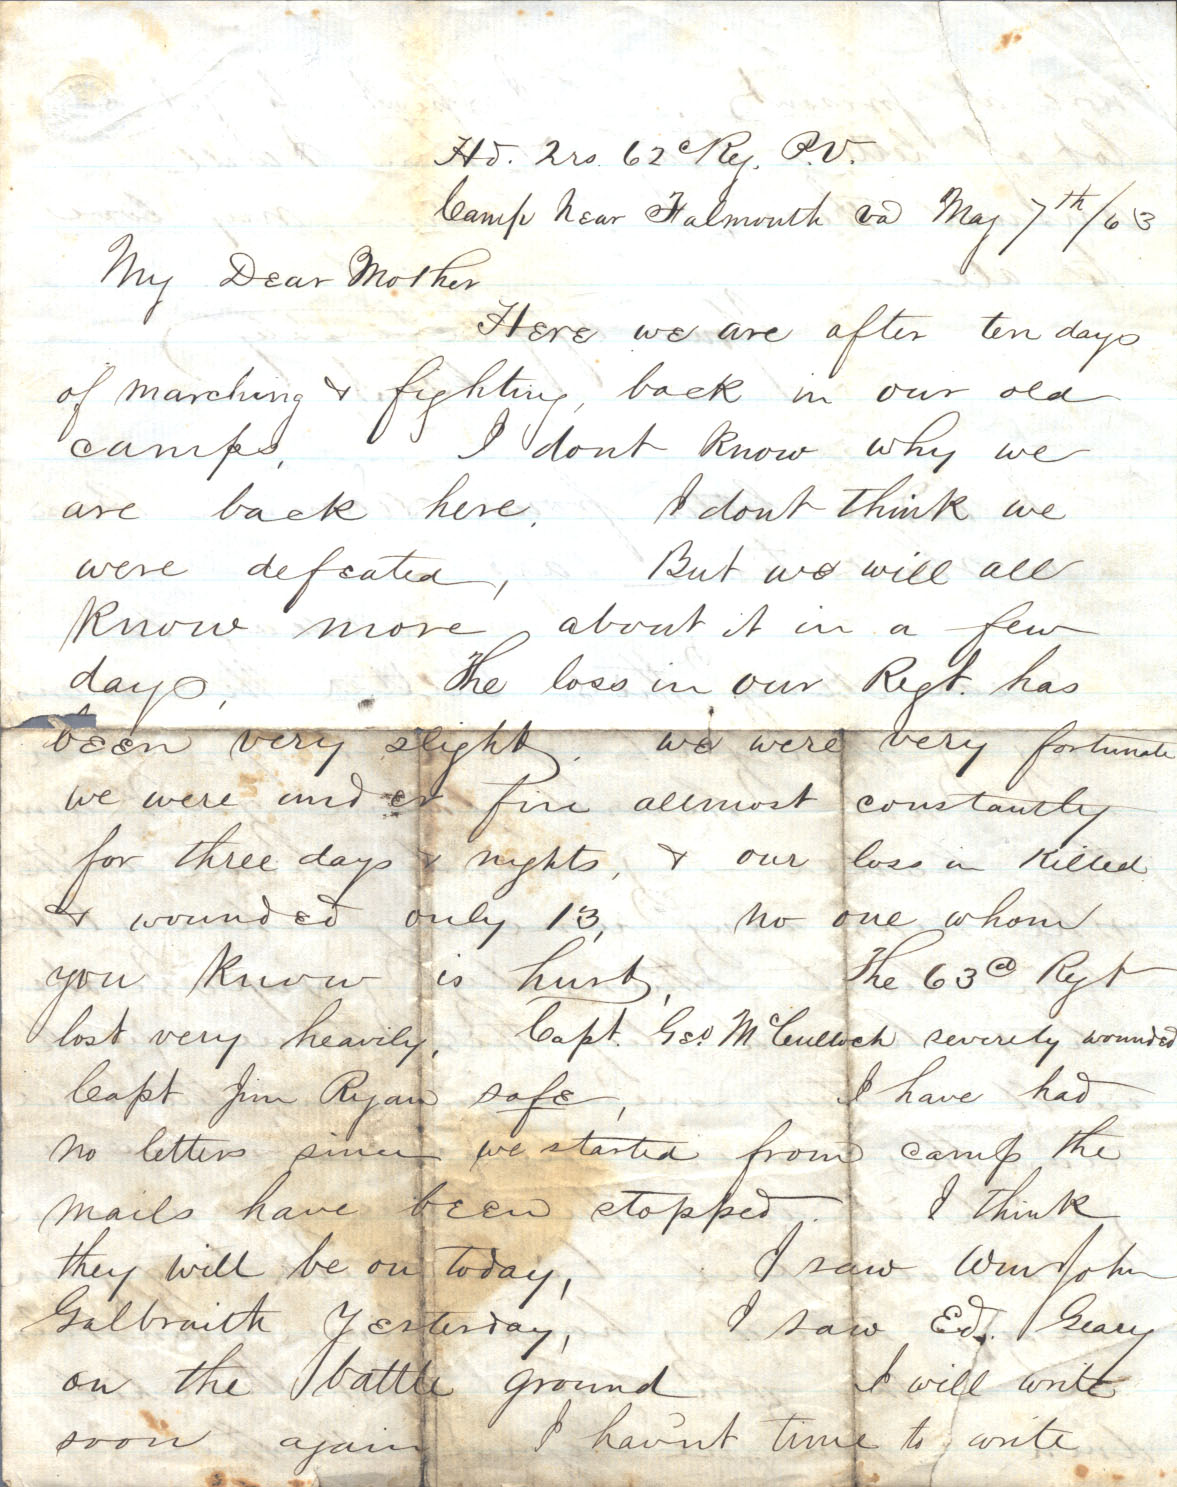 Hd. Qrs. 62d Reg. P.V.
Camp near Falmouth Va May 7th/63
My Dear Mother
Here we are after ten days
of marching & fighting, back in our old
camps, I dont know why we
are back here. I dont think we
were defeated, But we will all
know more about it in a few
days, The loss in our Regt. has
been very slight. we were very fortunate
we were under fire allmost constantly
for three days & nights, & our loss in killed
& wounded only 13, no one whom
you know is hurt, The 63d Regt
lost very heavily, Capt. Geo McCulloch severely wounded
Capt Jim Ryan safe, I have had
no letters since we started from camp the
mails have been stopped. I think
they will be on today, I saw Wm John
Galbraith Yesterday, I saw Ed. Geary
on the battle ground I will write
soon again I hav'nt time to write